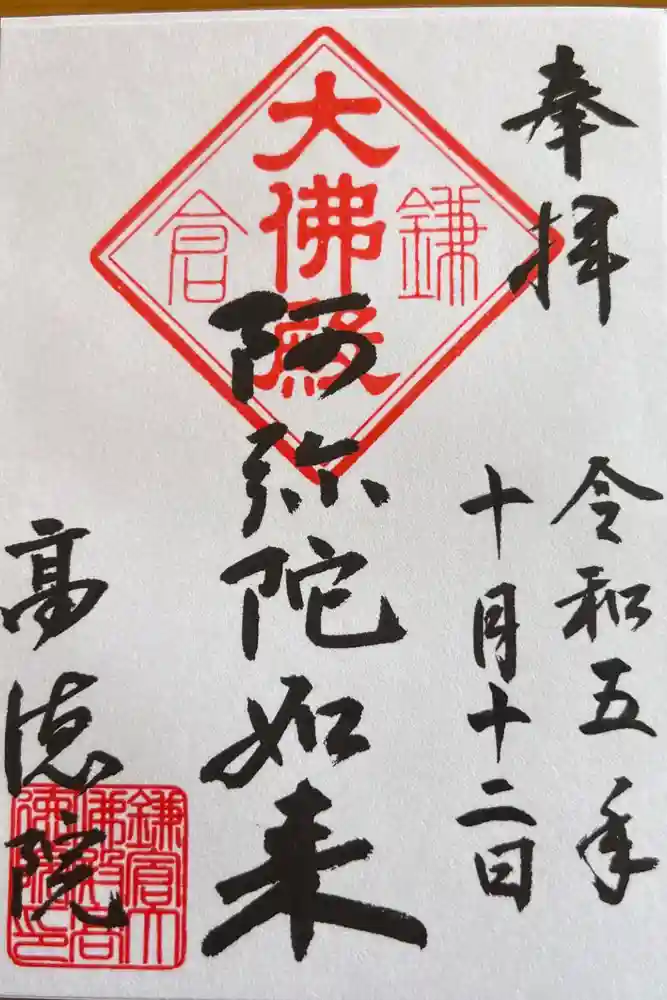 奉拝
令和五年
十月十二日
鎌倉
大佛殿
阿弥陀如来
高徳院
鎌倉大
佛殿高
徳院印